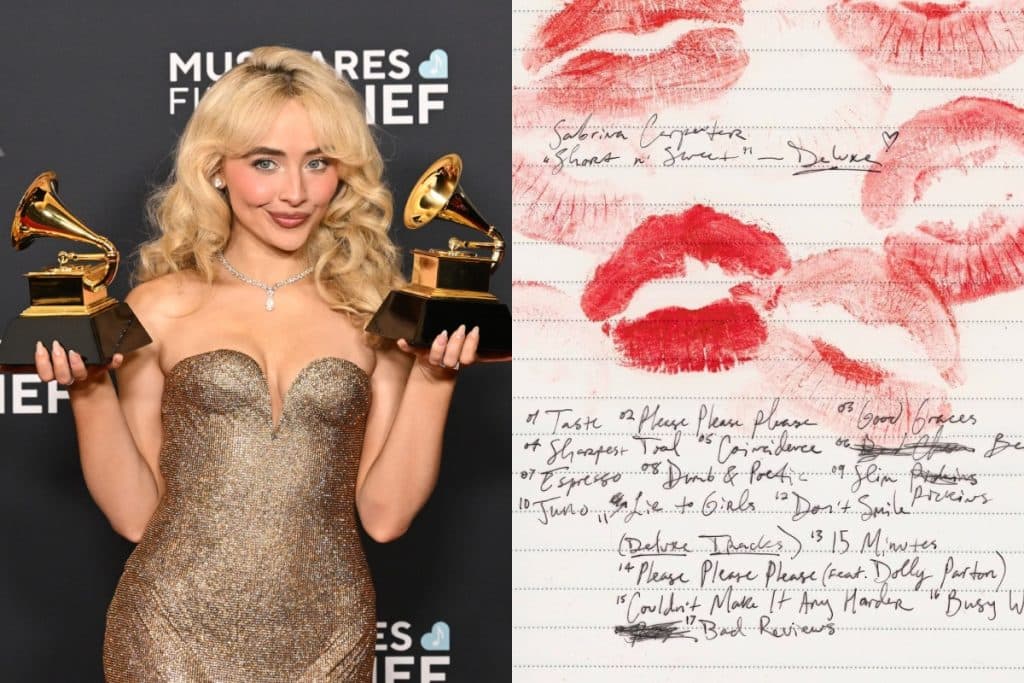 MUS ARES
FI IEF
IEF
ES
IEF
Sabrina Carpenter
"Short n' Sweet" — Deluxe ♡
01 Taste 02 Please Please Please 03 Good Graces
04 Sharpest Tool 05 Coincidence 06 Be
07 Espresso 08 Dumb & Poetic 09 Slim Pickins
10 Juno 11 Lie to Girls 12 Don't Smile Pickins
(Deluxe Tracks) 13 15 Minutes
14 Please Please Please (feat. Dolly Parton)
15 Couldn't Make It Any Harder 16 Busy W
17 Bad Reviews